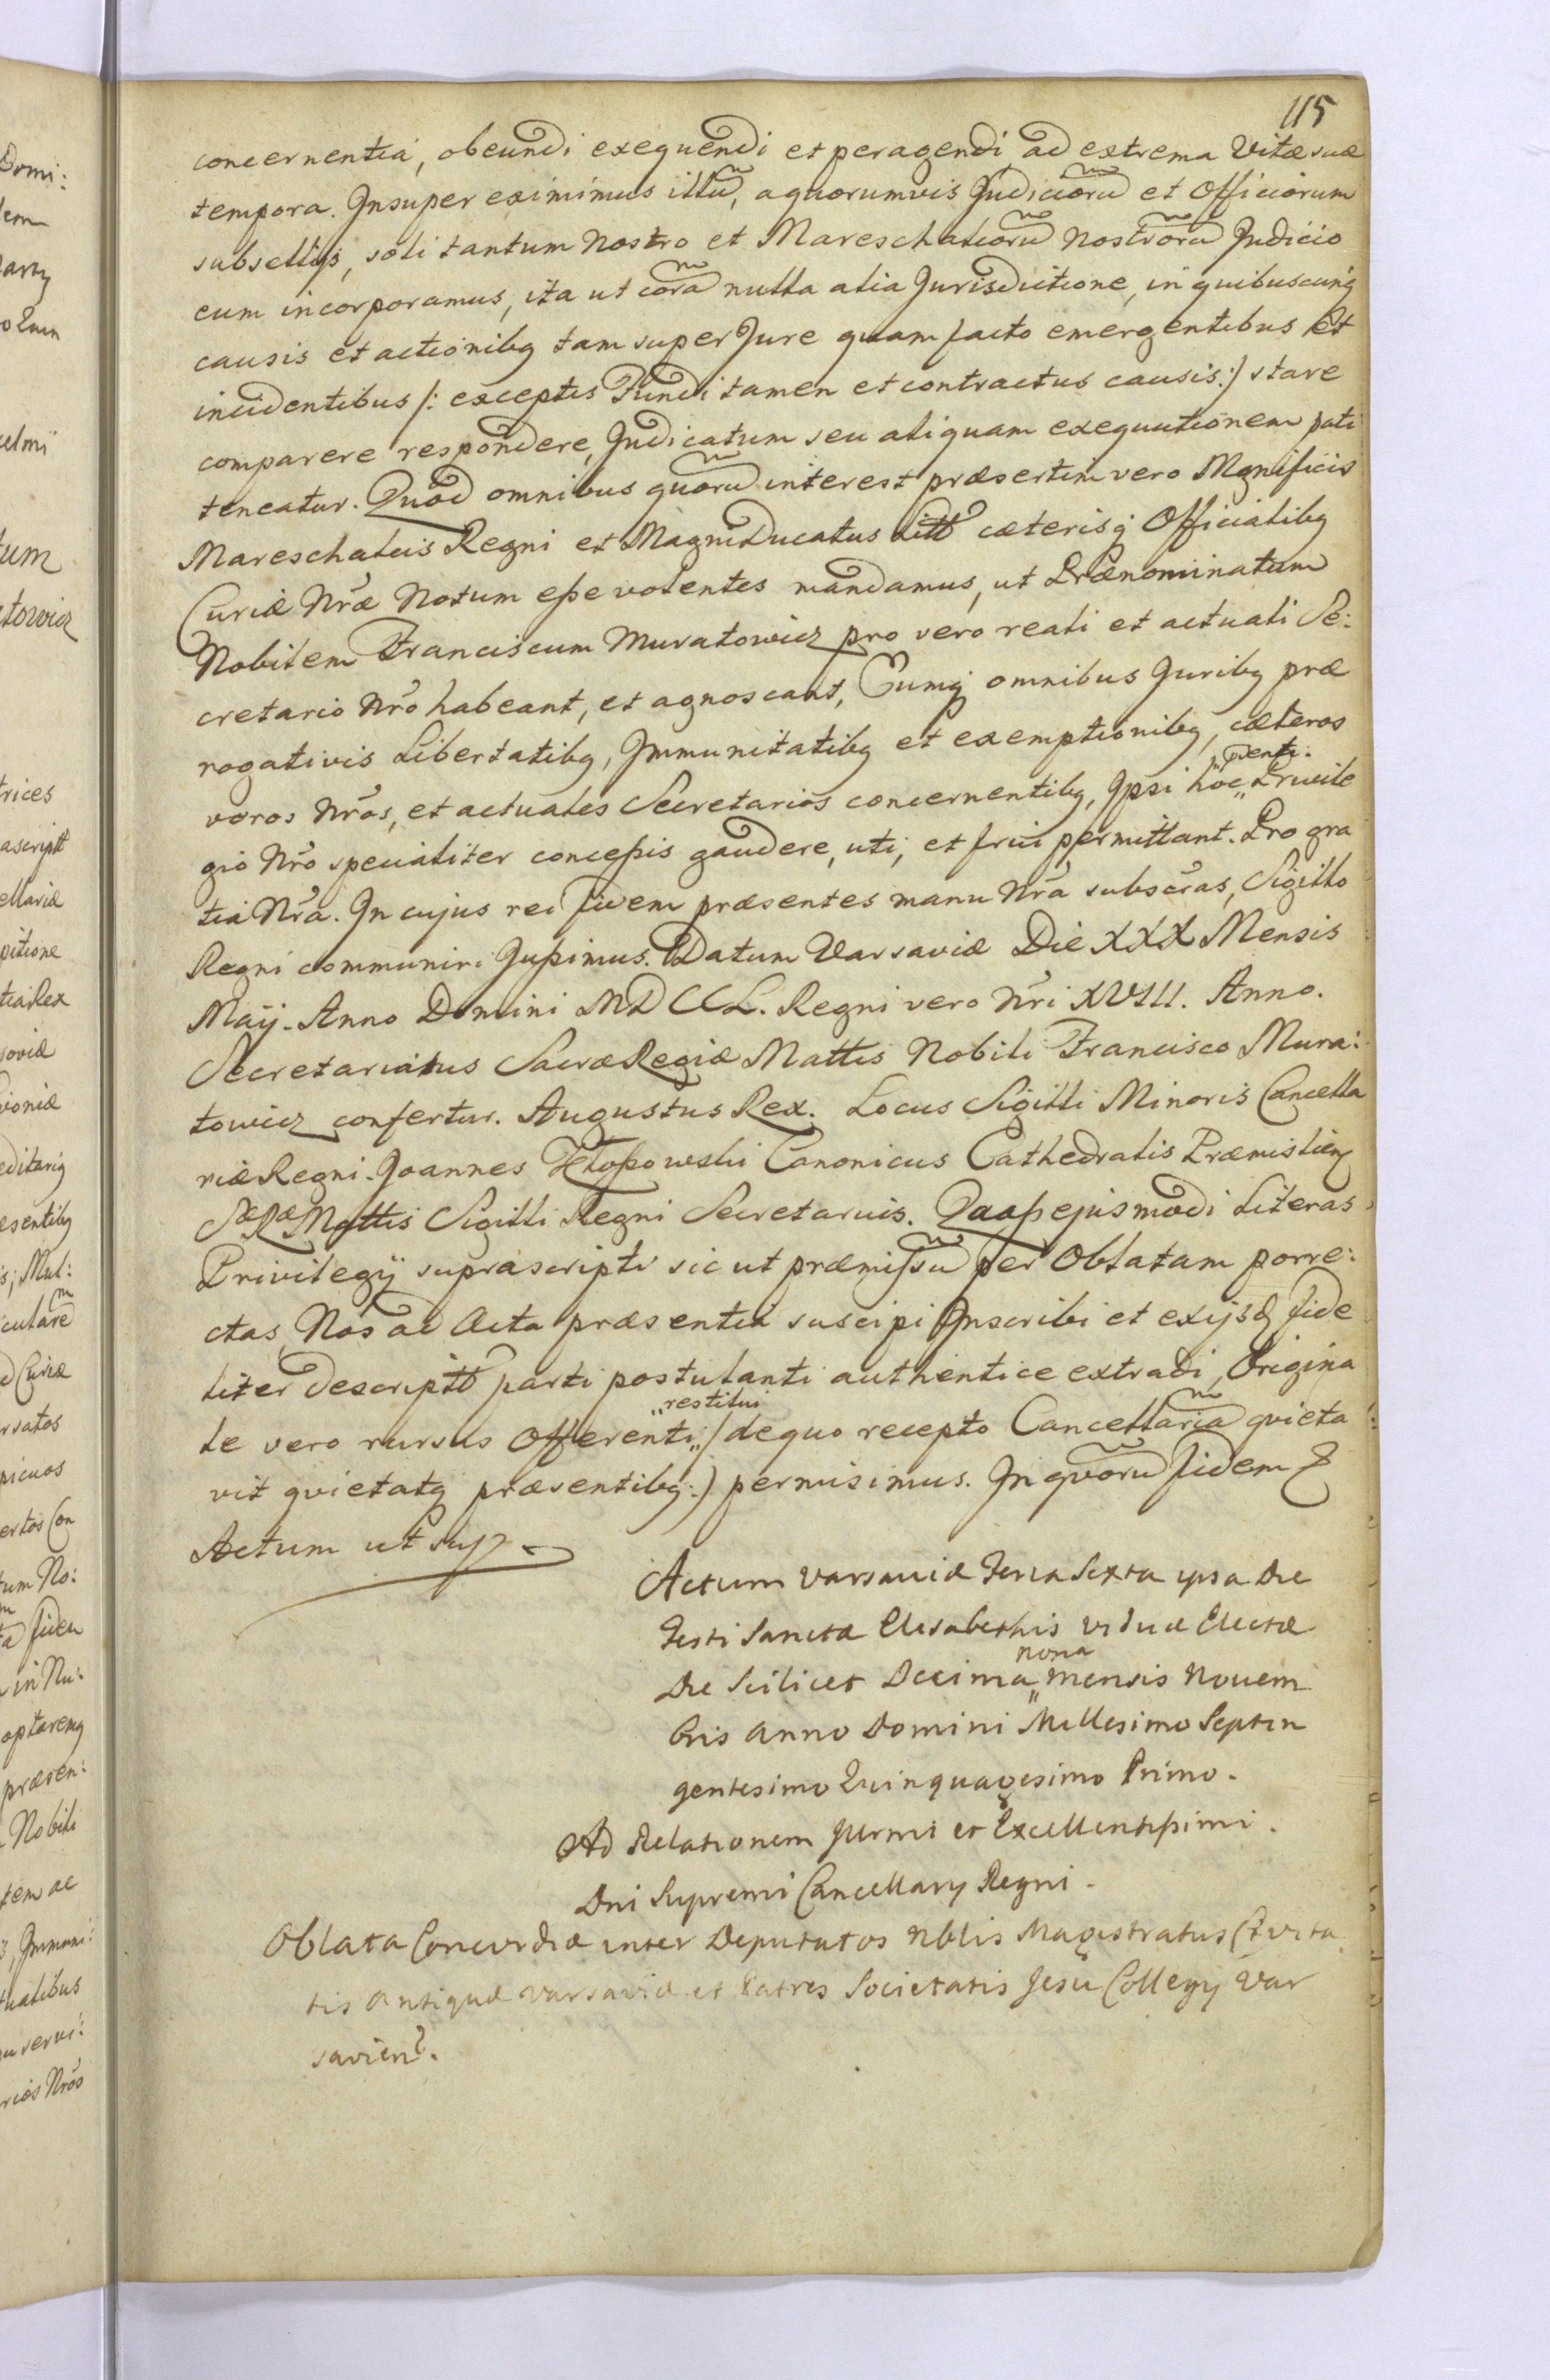 115
concernentia, obeundi exequendi et peragendi ad extrema Vitæ suæ
tempora. Insuper eximimus illũ, a quorumvis Judiciorũ et Officiorum
subsellijs, soli tantum Nostro et Mareschalcorũ Nostrorũ Judicio
eum incorporamus, ita ut corã nulla alia Jurisdictione, in quibuscunq̃
causis et actionibq tam super Jure quam facto emergentibus et
incidentibus /: exceptis Fundi tamen et contractus causis :/ stare
comparere respondere, Judicatum seu aliquam exequutionem pati
teneatur. Quod omnibus quorũ interest præsertim vero Mgnificis
Mareschalcis Regni et Magni Ducatus Litt cæterisq̃ Officialibq
Curiæ Nr̃æ Notum eße volentes mandamus, ut Prænominatum
Nobilem Franciscum Muratowicz pro vero reali et actuali Se:
cretario Nr̃o habeant, et agnoscant, Eumq̃ omnibus Juribq præ
rogativis Libertatibq, Immunitatibq et exemptionibq, cæteros
veros Nr̃os, et actuales Secretarios concernentibq, Ipsi hoc „ Privile
"p̃senti.
gio Nr̃o specialiter conceßis gaudere, uti, et frui permittant. Pro gra
tia Nr̃a. In cujus rei fidem præsentes manu Nr̃a subscr̃as, Sigillo
Regni communiri Jußimus. Datum Varsaviæ Die XXX Mensis
Maij. Anno Domini MDCCL. Regni vero Nr̃i XVIII. Anno.
Secretariatus Sacræ Regiæ Mattis Nobili Francisco Mura:
towicz confertur. Augustus Rex. Locus Sigilli Minoris Cancella
riæ Regni. Joannes Kłoßowski Canonicus Cathedralis Præmislienq
SæRæ Mattis Sigilli Regni Secretarius. Quas ejusmodi Literas
Privilegij suprascripti sic ut præmissũ per Oblatam porre:
ctas Nos ad Acta præsentia suscipi Inscribi et exijsd fide
liter descriptt parti postulanti authentice extradi, Origina
le vero rursus Offerenti „ /: de quo recepto Cancellariã qvieta
„ restitui
vit qvietatq præsentibq :) permisimus. In qvorũ fidem &
Actum ut Sup
Actum Varsaviæ Feria Sexta ipsa Die
Festi Sanctæ Elisabethis Viduæ Electæ
Die Scilicet Decima „ Mensis Novem
nona
bris Anno Domini Millesimo Septin
gentesimo Quinquagesimo Primo.
Ad Relationem Jllrmi et Excellentißimi.
Dni Supremi Cancellary Regni.
Oblata Concordiæ inter Deputatos Nblis Magistratus Civita
tis Antiquæ Varsaviæ et Patres Societatis Jesu Collegij Var
savien.